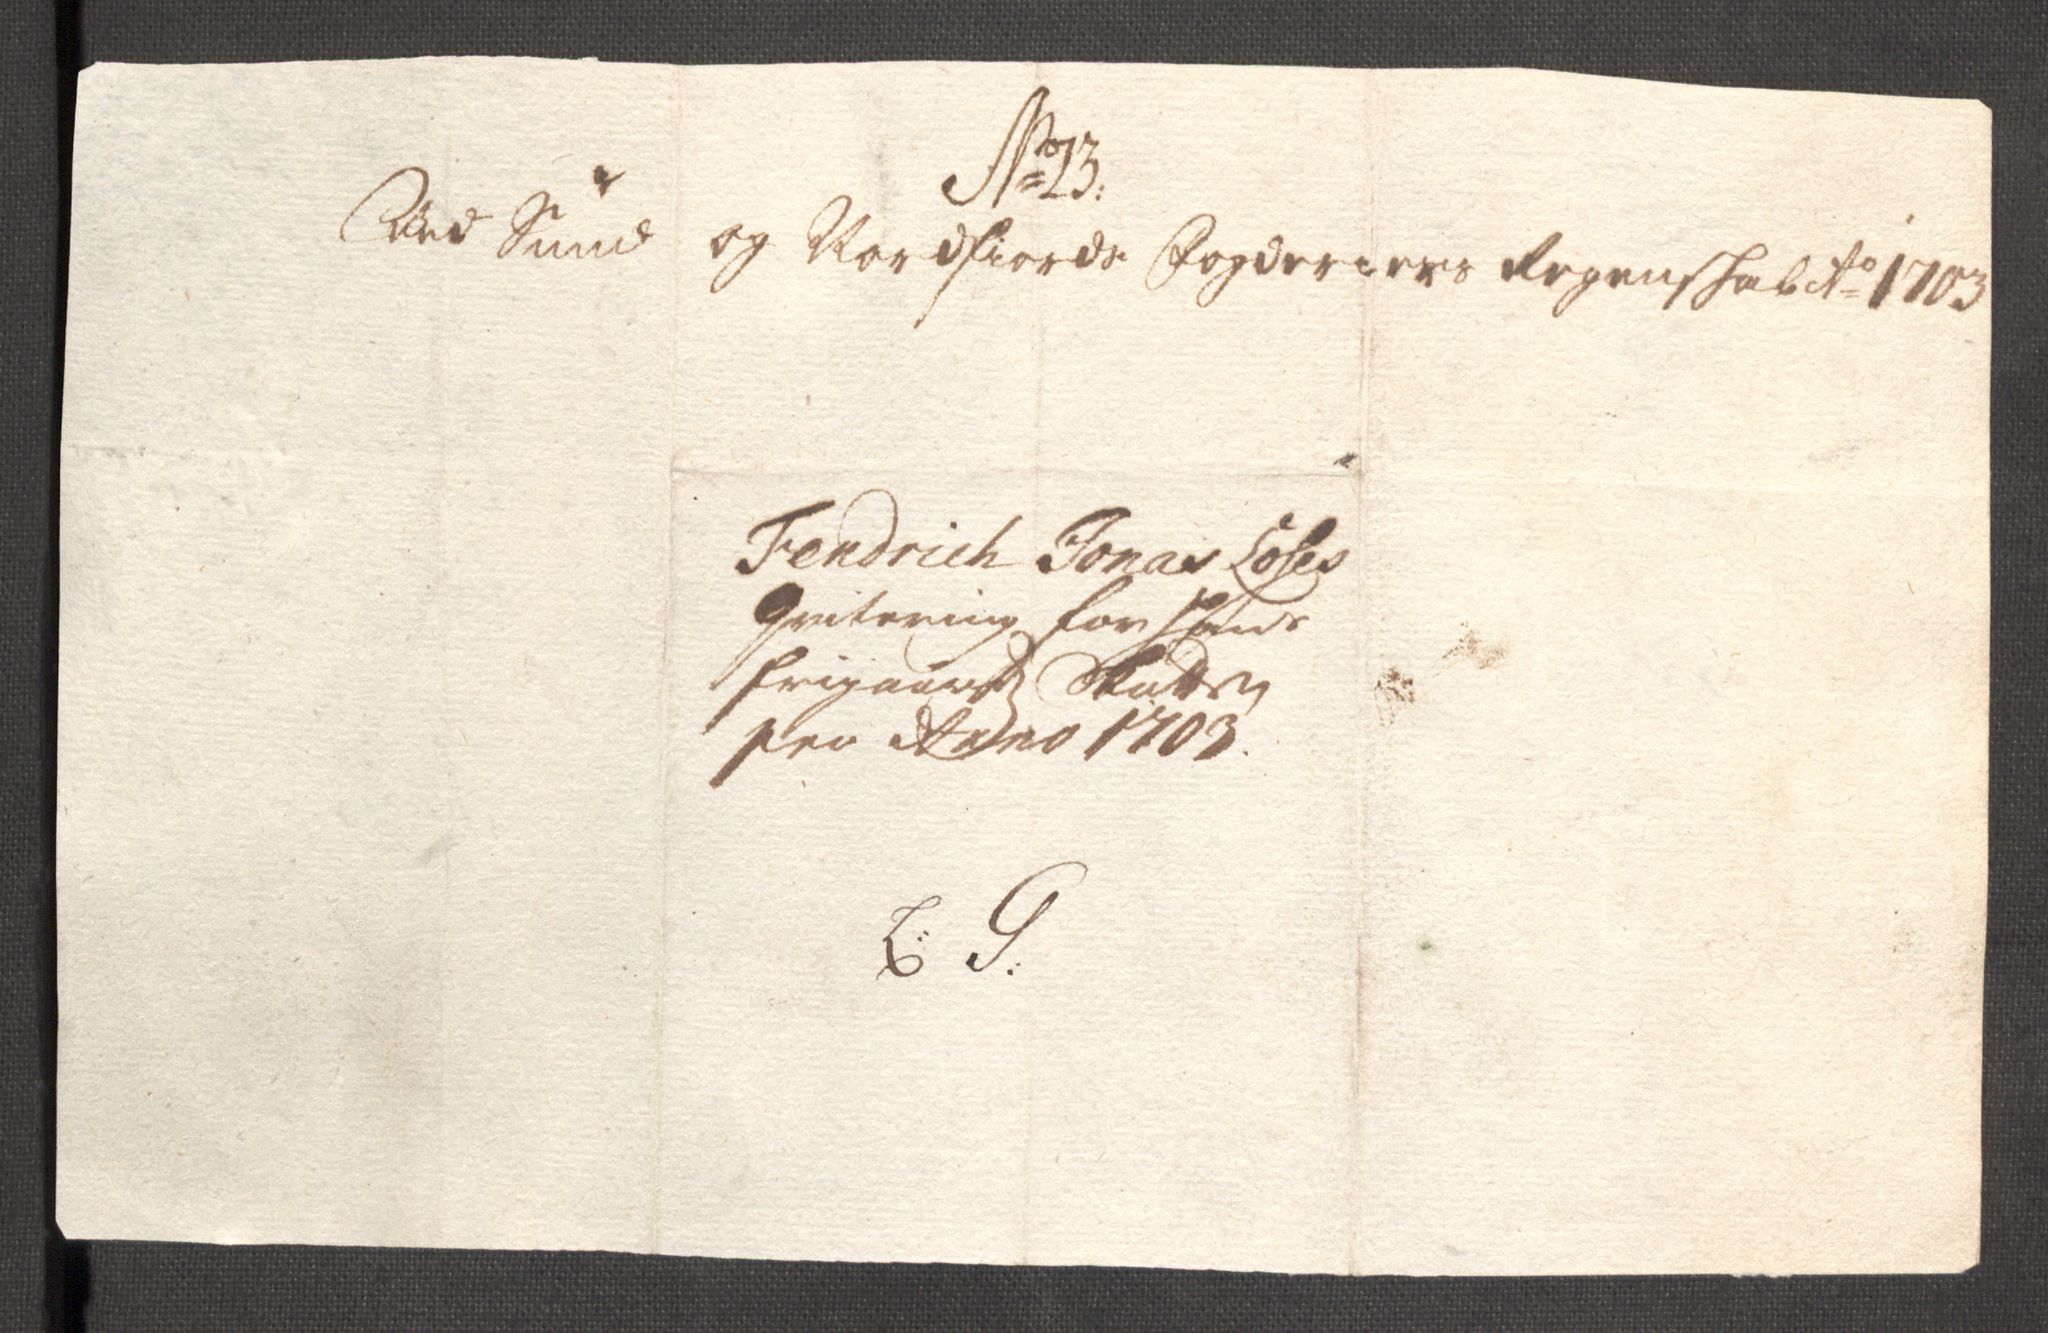 No 23:
Ved Sund og Nordfiords Fogderiers Regenskab Ao 1703
Fendrich Jonas Löses
Qvitering for hans
frigaards Skatter
per Anno 1703.
L: G: